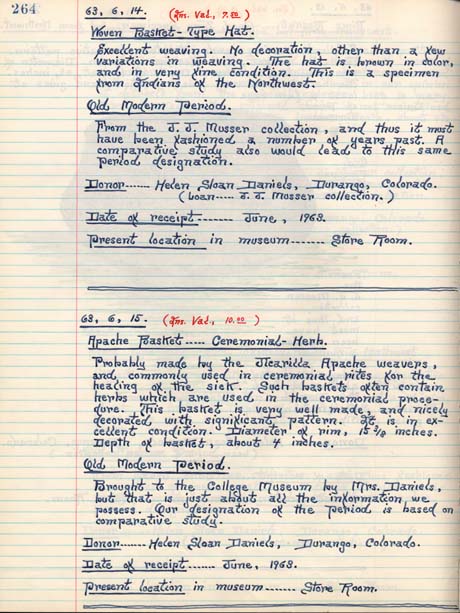 264
63, 6, 14. (Ins. Val., 7.00)
Woven Basket-Type Hat.
Excellent weaving. No decoration, other than a few
variations in weaving. The hat is brown in color,
and in very fine condition. This is a specimen
from Indians of the Northwest.
Old Modern Period.
From the J. J. Musser collection, and thus it must
have been fashioned a number of years past. A
comparative study also would lead to this same
period designation.
Donor------ Helen Sloan Daniels, Durango, Colorado.
(Loan---- J. J. Musser collection.)
Date of receipt------- June, 1963.
Present location in museum------- Store Room.
63, 6, 15. (Ins. Val., 10.00)
Apache Basket ----- Ceremonial-Herb.
Probably made by the Jicarilla Apache weavers,
and commonly used in ceremonial rites for the
healing of the sick. Such baskets often contain
herbs which are used in the ceremonial proce-
dure. This basket is very well made, and nicely
decorated with significant pattern. It is in ex-
cellent condition. Diameter of rim, 15 inches.
Depth of basket, about 4 inches.
Old Modern Period.
Brought to the College Museum by Mrs. Daniels,
but that is just about all the information we
possess. Our designation of the period is based on
comparative study.
Donor------- Helen Sloan Daniels, Durango, Colorado.
Date of receipt------ June, 1963.
Present location in museum------- Store Room.